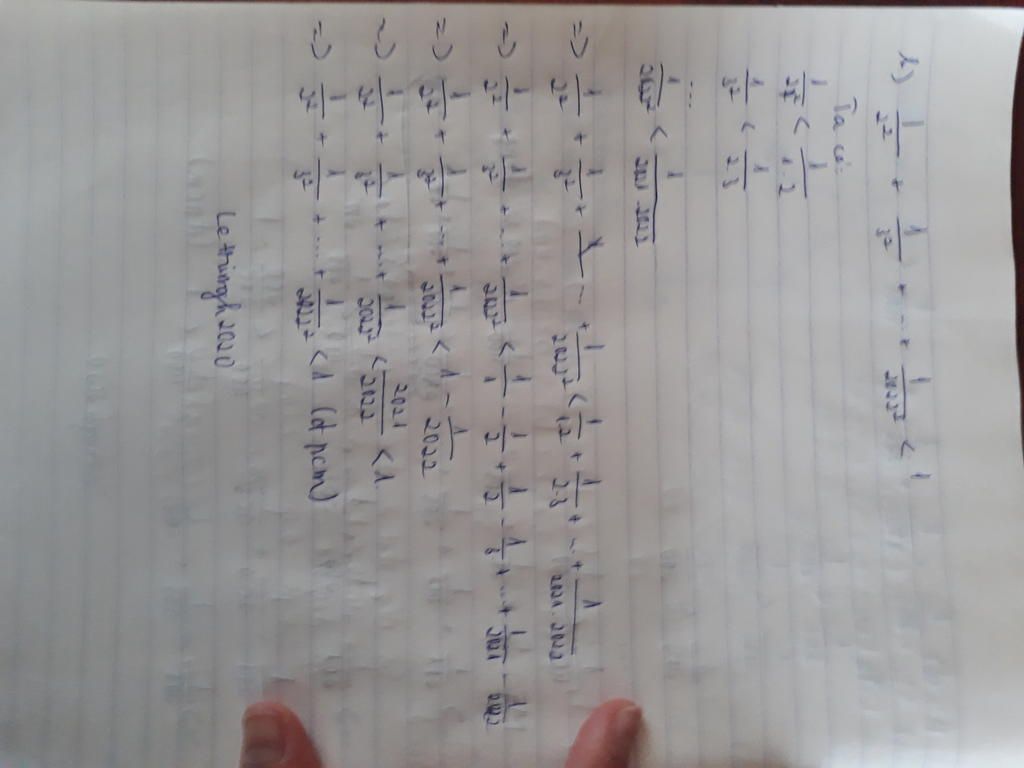 b) 1/2² + 1/3² + ... + 1/2022² < 1
Ta có:
1/2² < 1/1.2
1/3² < 1/2.3
...
1/2022² < 1/2021.2022
=> 1/2² + 1/3² + ... + 1/2022² < 1/1.2 + 1/2.3 + ... + 1/2021.2022
=> 1/2² + 1/3² + ... + 1/2022² < 1/1 - 1/2 + 1/2 - 1/3 + ... + 1/2021 - 1/2022
=> 1/2² + 1/3² + ... + 1/2022² < 1 - 1/2022
=> 1/2² + 1/3² + ... + 1/2022² < 2021/2022 < 1
=> 1/2² + 1/3² + ... + 1/2022² < 1 (đpcm)